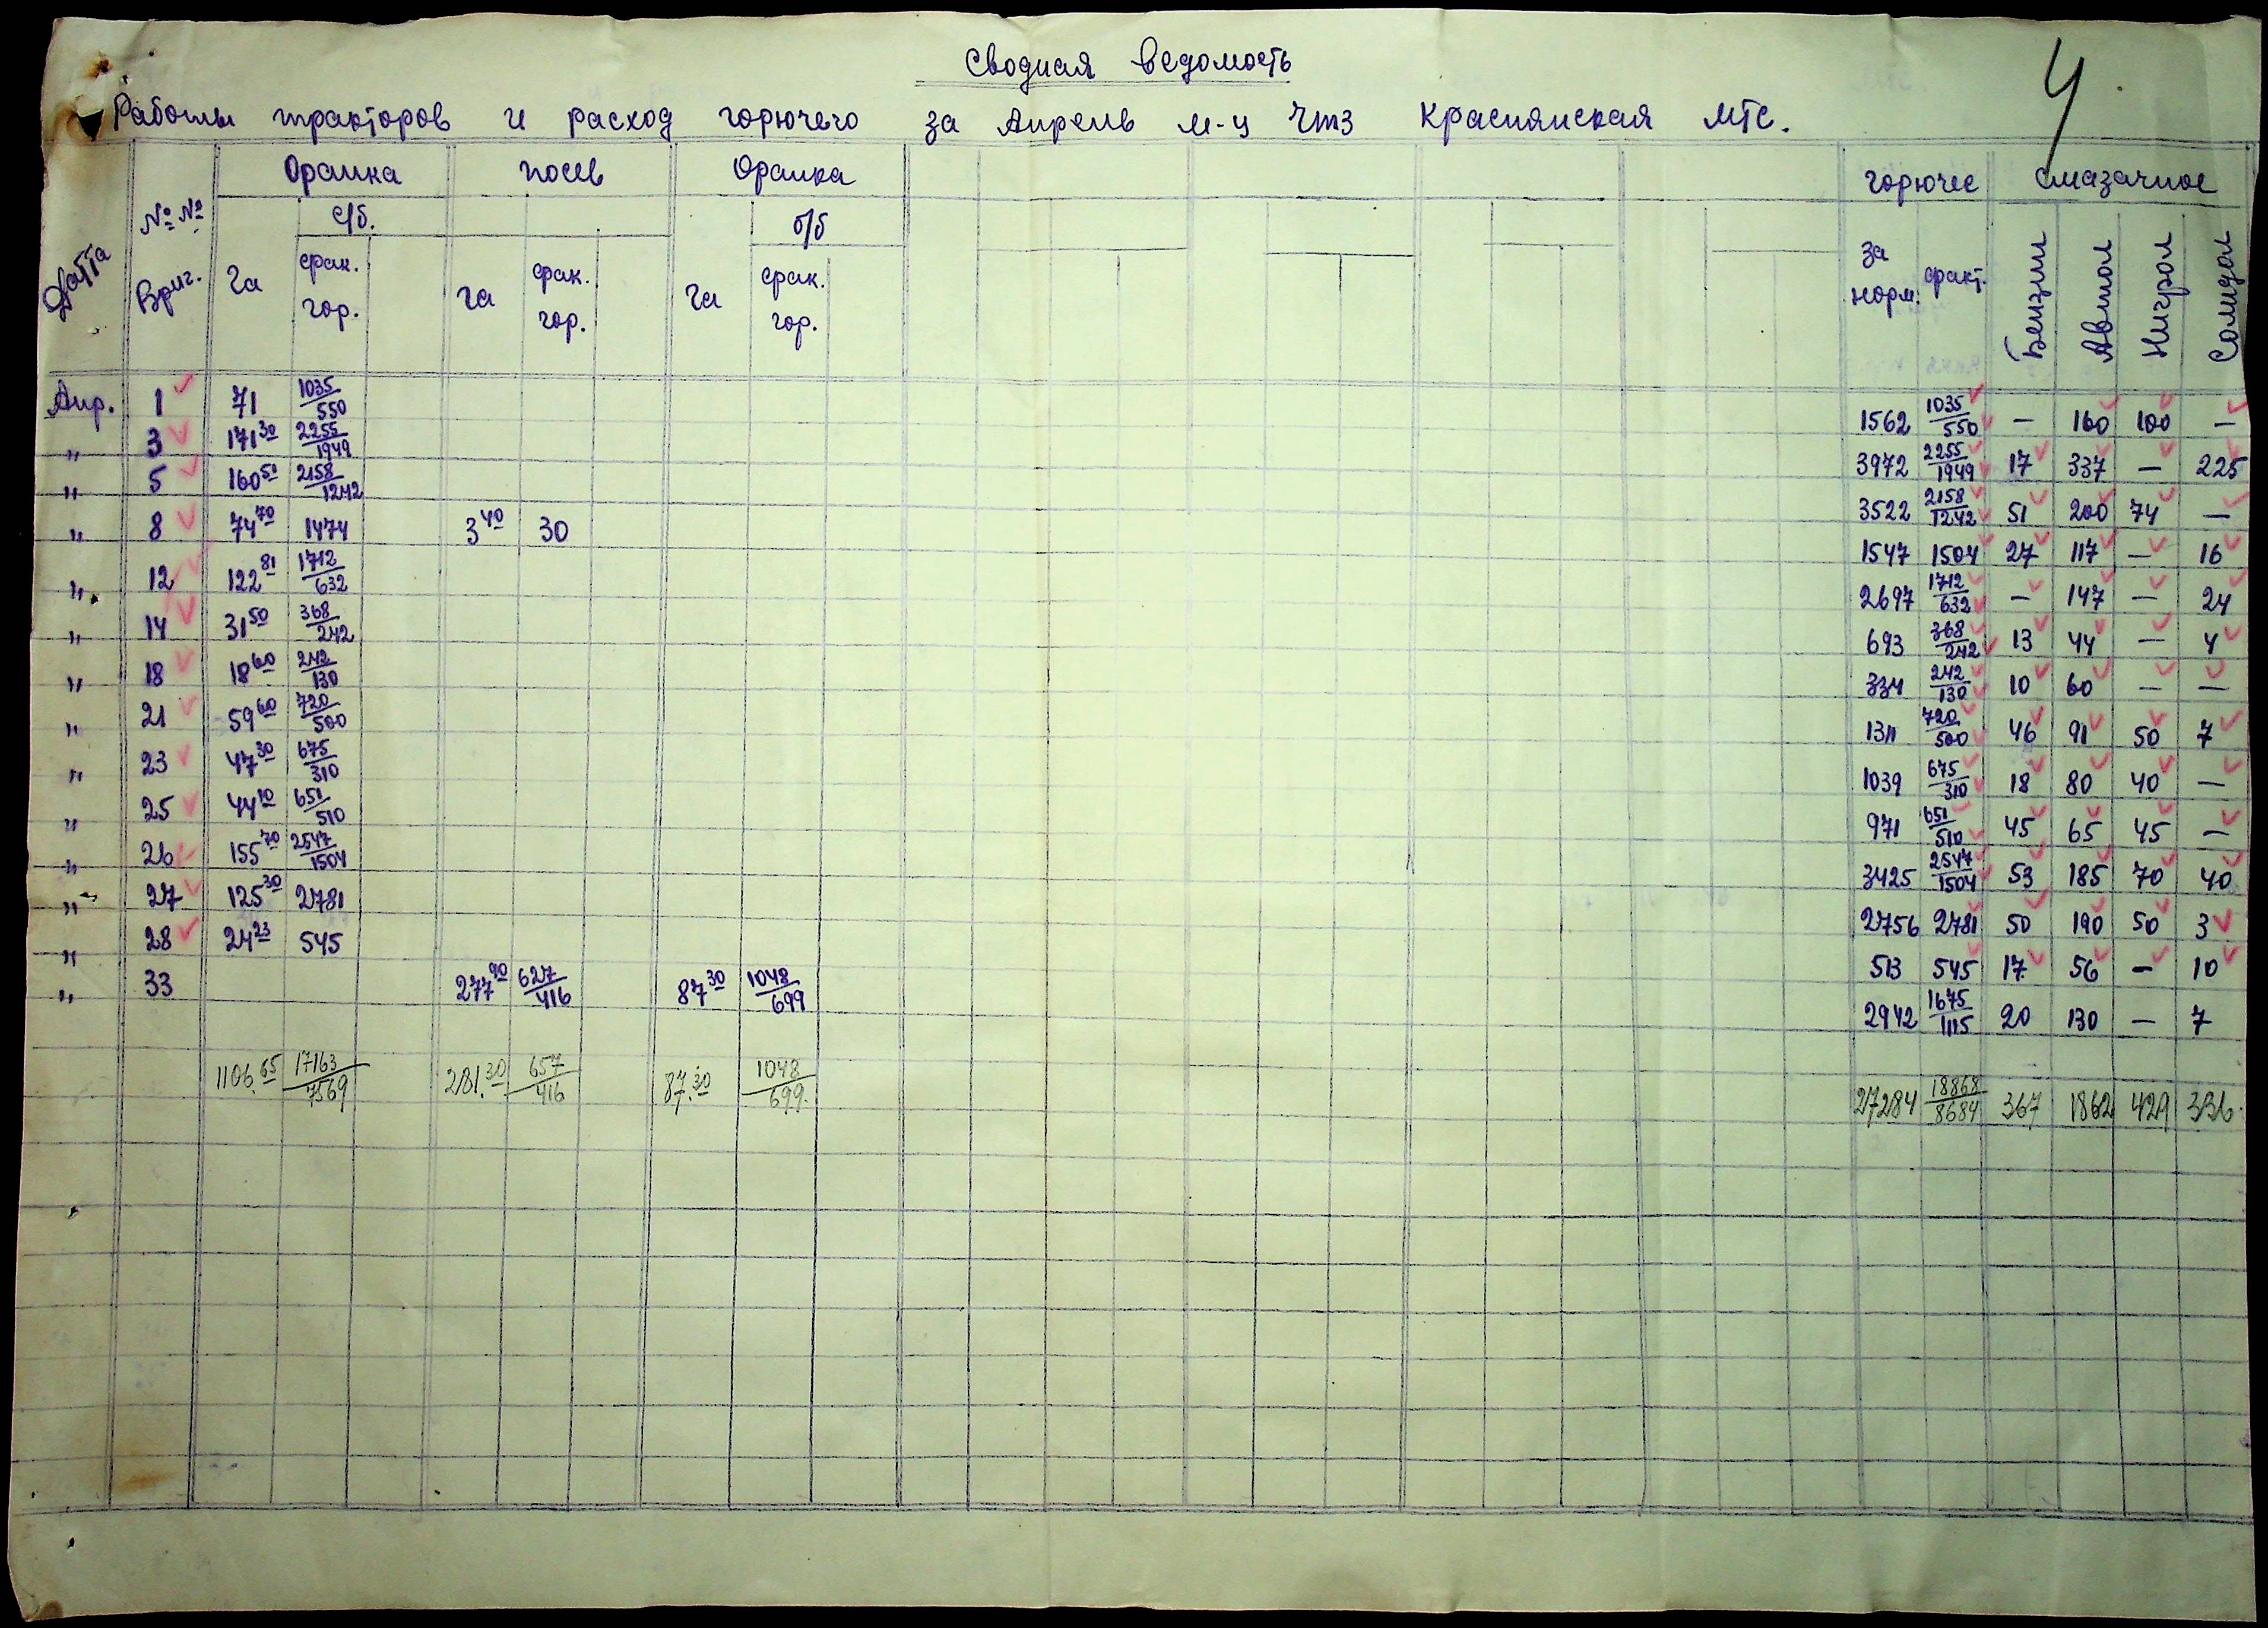 Сводная ведомость
4.
Работы тракторов и расход горючего за Апрель м-ц ЧТЗ Краснянская МТС.
Датта №№ Бриг. Оранка посев Оранка горючее смазачное
с/б. б/б
га фак. гор. га фак. гор. га фак. гор. за норм. факт. Бензин Автол Нигрол Солидол
Апр. 1 71 1035/550 1562 1035/550 — 160 100 —
" 3 171 30 2255/1949 3972 2255/1949 17 337 — 225
" 5 160 51 2158/1242 3522 2158/1242 51 200 74 —
" 8 74 70 1474 3 40 30 1547 1504 27 117 — 16
" 12 122 81 1712/632 2697 1712/632 — 147 — 24
" 14 31 50 368/242 693 368/242 13 44 — 4
" 18 18 60 242/130 334 242/130 10 60 — —
" 21 59 60 720/500 1311 720/500 46 91 50 7
" 23 47 30 675/310 1039 675/310 18 80 40 —
" 25 44 10 651/510 971 651/510 45 65 45 —
" 26 155 70 2547/1504 3425 2547/1504 53 185 70 40
" 27 125 30 2781 2756 2781 50 190 50 3
" 28 24 23 545 513 545 17 56 — 10
" 33 277 90 627/416 87 30 1048/699 2942 1675/1115 20 130 — 7
1106.65 17163/7569 281.30 657/416 87.30 1048/699. 27284 18868/8684 367 1862 429 336.